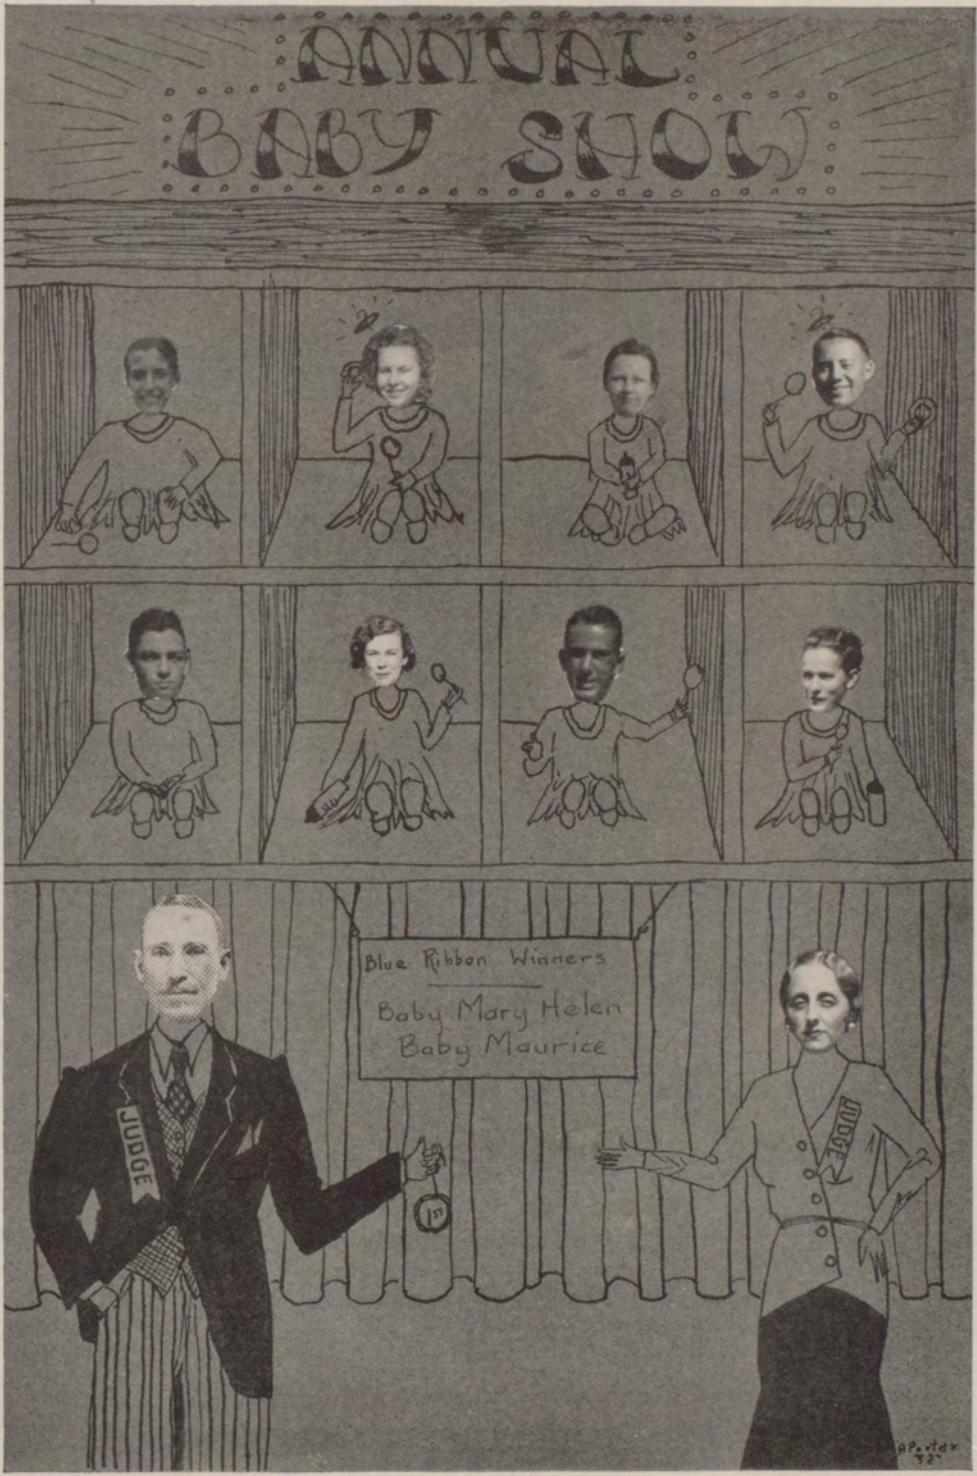 ANNUAL
BABY SHOW
Blue Ribbon Winners
Baby Mary Helen
Baby Maurice
JUDGE
1ST
JUDGE
APorter
32